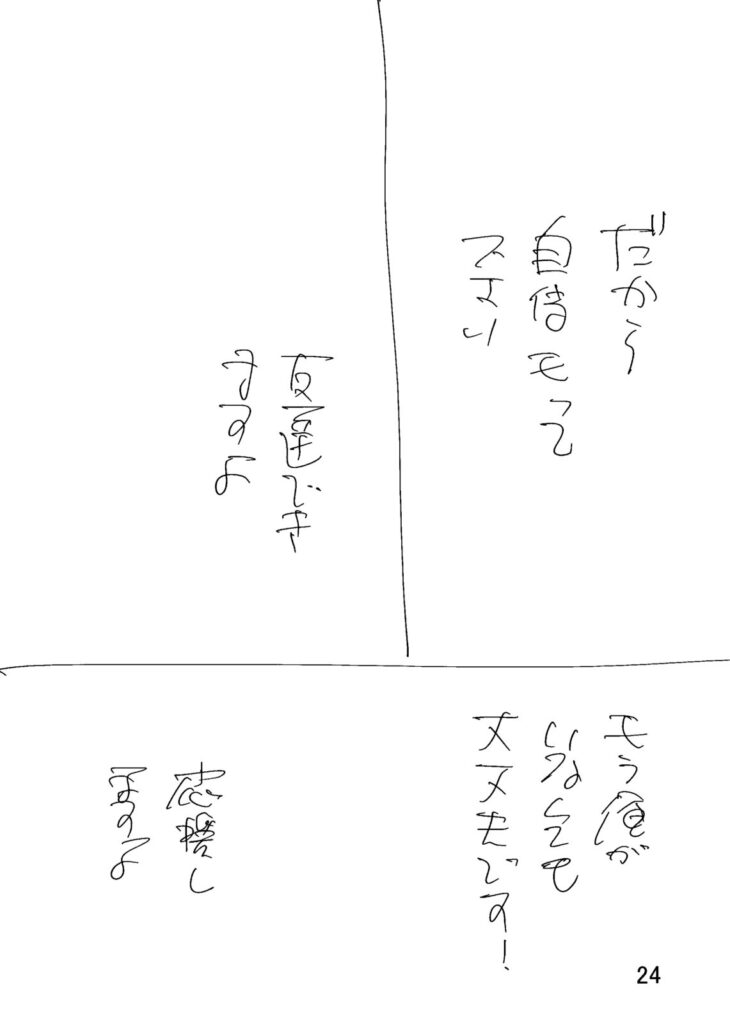 だから
自信モって
下さい
友達でき
ますよ
モう俺が
いなくても
大丈夫です!
応援し
ますよ
24